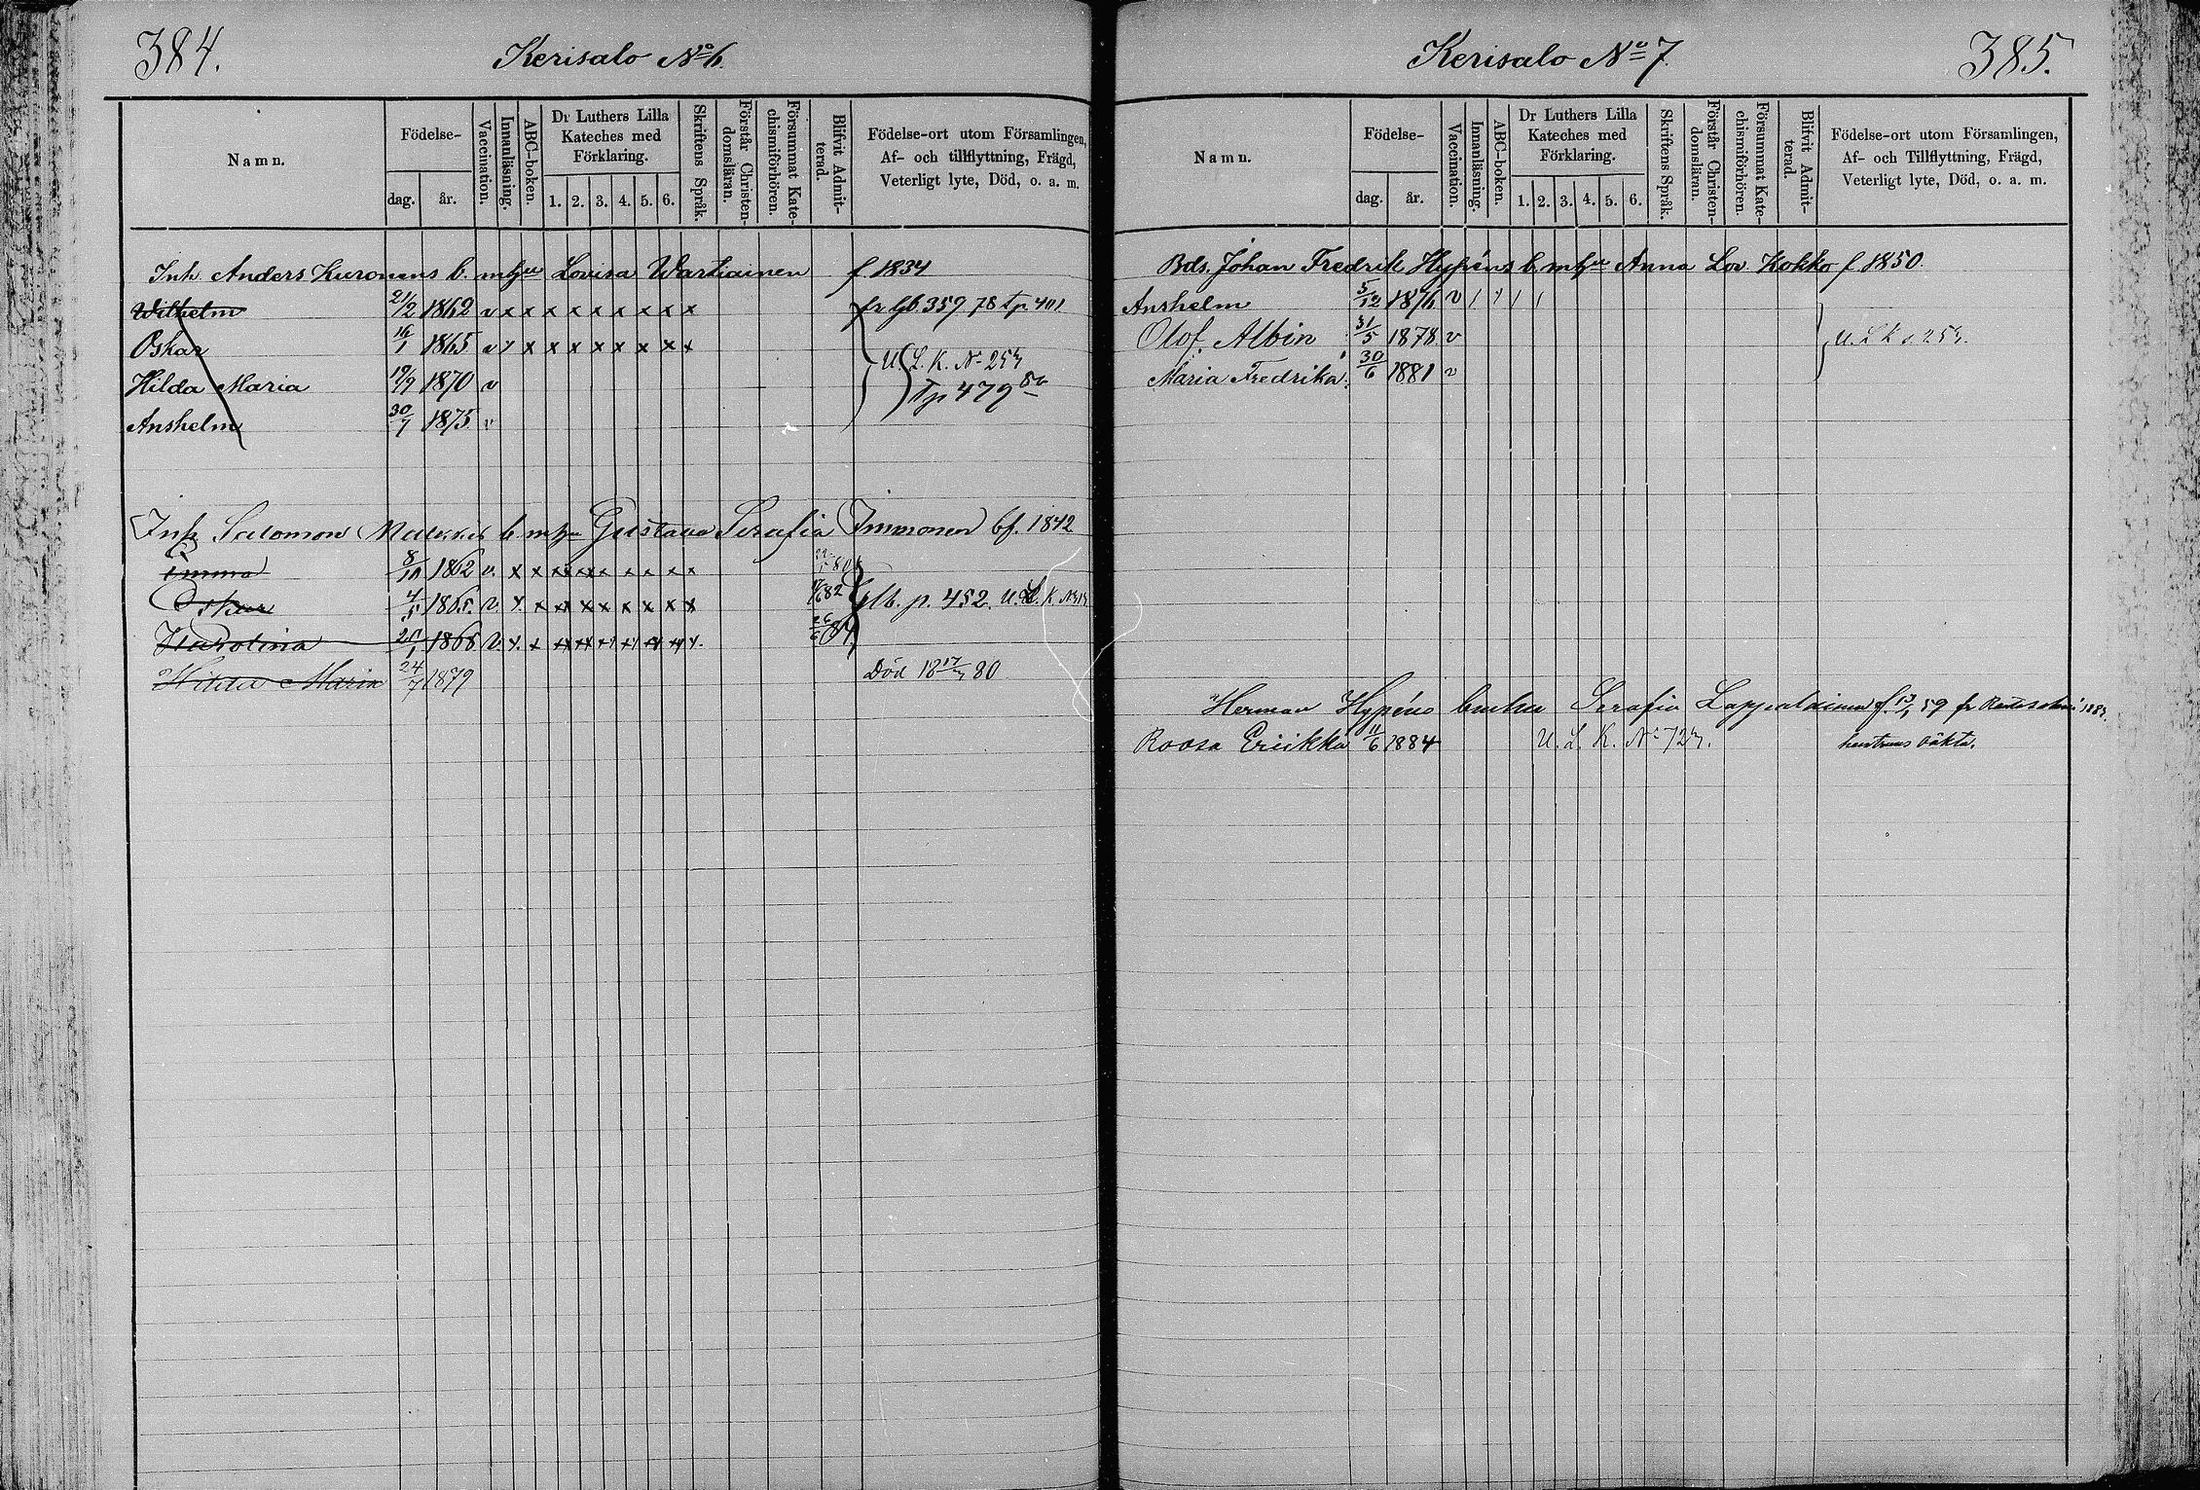 384.
Kerisalo No 6.
Namn.
Födelse-
dag.
år.
Vaccination.
Innanläsning.
ABC-boken.
Dr Luthers Lilla
Kateches med
Förklaring.
1. 2. 3. 4. 5. 6.
Skriftens Språk.
Förstår Christen-
domsläran.
Försummat Kate-
chismiförhören.
Blifvit Admit-
terad.
Födelse-ort utom Församlingen,
Af- och tillflyttning, Frägd,
Veterligt lyte, Död, o. a. m.
Inh. Anders Kuronens b. m hu Lovisa Wartiainen f 1834
Wilhelm 21/2 1862 v x x x x x x x x x fr lb 359 78 tp 401
Oskar 16/1 1865 v x x x x x x x x
U. L. K. No
Hilda Maria 19/9 1870 v
Tp 479
Anshelm 30/7 1875 v
Inh Salomon b. m hu Gustava Serafia Immonen f. 1842
Emma 8/10 1862 v. x x x x x x x x x 80
Oskar 4/5 1865. v. x x x x x x x x x 82 lb. p. 452. U. L. K.
Karolina 1868 v. x x x x x x x x x 84
Hilda Maria 24/7 1879 Död 18 17/7 80
385.
Kerisalo No 7
Namn.
Födelse-
dag.
år.
Vaccination.
Innanläsning.
ABC-boken.
Dr Luthers Lilla
Kateches med
Förklaring.
1. 2. 3. 4. 5. 6.
Skriftens Språk.
Förstår Christen-
domsläran.
Försummat Kate-
chismiförhören.
Blifvit Admit-
terad.
Födelse-ort utom Församlingen,
Af- och Tillflyttning, Frägd,
Veterligt lyte, Död, o. a. m.
Bds. Johan Fredrik Hypéns b. m hu Anna Lov. Kokko f 1850.
Anshelm 5/12 1876 v
Olof Albin 31/5 1878 v U. L. K.
Maria Fredrika 30/6 1881 v
Herman Hypéns Serafia Lappalainen f. 59 fr
Roosa Eriikka 11/6 1884 U. L. K. No oäkta.